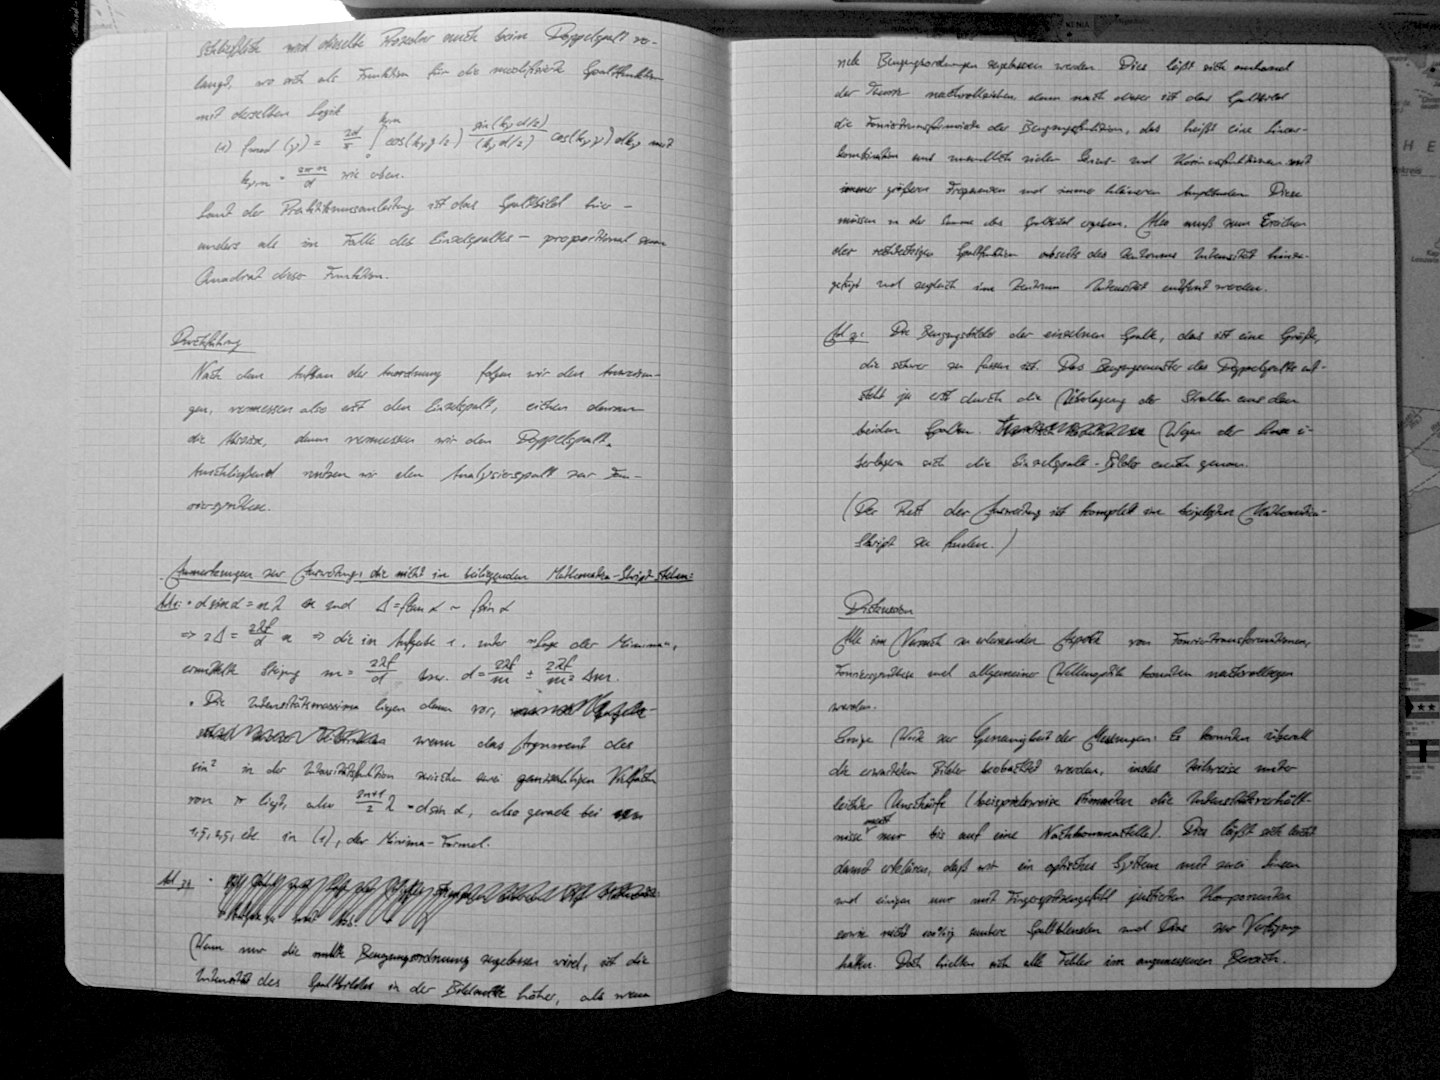 schließlich wird dieselbe Prozedur auch beim Doppelspalt ver-
langt, wo sich als Funktion für die modifizierte Spaltfunktion
mit derselben Logik
(4) f_mod (y) = 2d/π ∫_0^{k_{y,m}} cos(k_y g/2) sin(k_y d/2)/(k_y d/2) cos(k_y y) dk_y mit
k_{y,m} = 2πn/d wie oben.
Laut der Praktikumsanleitung ist das Spaltbild hier –
anders als im Falle des Einzelspaltes – proportional zum
Quadrat dieser Funktion.
Durchführung
Nach dem Aufbau der Anordnung folgen wir den Anweisun-
gen, vermessen also erst den Einzelspalt, eichen darum
die Achse, dann vermessen wir den Doppelspalt.
Anschließend nutzen wir den Analysierspalt zur Fou-
riersynthese.
Anmerkungen zur Auswertung, die nicht im beiliegenden Mathematica-Skript stehen:
Ad 1: • d sin α = n λ und Δ = f tan α ~ f sin α
=> 2Δ = 2λf/d n => die in Aufgabe 1. unter "Lage der Minima",
ermittelte Steigung m = 2λf/d bzw. d = 2λf/m ± 2λf/m² Δm.
• Die Intensitätsmaxima liegen dann vor,
wenn das Argument des
sin² in der Intensitätsfunktion zwischen zwei ganzzahligen Vielfachen
von π liegt, also (2n+1)/2 λ = d sin α, also gerade bei
1,5, 2,5, etc. in (1), der Minima-Formel.
Ad 3: •
Wenn nur die nullte Beugungsordnung zugelassen wird, ist die
Intensität des Spaltbildes in der Bildmitte höher, als wenn
viele Beugungsordnungen zugelassen werden. Dies läßt sich anhand
der Theorie nachvollziehen, denn nach dieser ist das Spaltbild
die Fouriertransformierte der Beugungsfunktion, das heißt eine Linear-
kombination aus unendlich vielen Sinus- und Kosinusfunktionen mit
immer größeren Frequenzen und immer kleineren Amplituden. Diese
müssen in der Summe das Spaltbild ergeben. Also muß zum Erreichen
der rechteckigen Spaltfunktion abseits des Zentrums Intensität hinzu-
gefügt und zugleich im Zentrum Intensität entfernt werden.
Die Beugungsbilder der einzelnen Spalte, das ist eine Größe,
die schwer zu fassen ist. Das Beugungsmuster des Doppelspaltes ent-
steht ja erst durch die Überlagerung der Strahlen aus den
beiden Spalten. (Wegen der Linse ü-
berlagern sich die Einzelspalt-Bilder auch genau.
(Der Rest der Auswertung ist komplett im beigelegten Mathematica-
Skript zu finden.)
Diskussion
Alle im Versuch zu erlernenden Aspekte von Fouriertransformationen,
Fouriersynthese und allgemeiner Wellenoptik konnten nachvollzogen
werden.
Einige Worte zur Genauigkeit der Messungen: Es konnten überall
die erwarteten Bilder beobachtet werden, indes teilweise unter
leichter Unschärfe (beispielsweise stimmten die Intensitätsverhält-
nisse meist nur bis auf eine Nachkommastelle). Dies läßt sich leicht
damit erklären, daß wir ein optisches System mit zwei Linsen
und einigen nur mit Fingerspitzengefühl justierten Komponenten
sowie nicht völlig saubere Spaltblenden und Dias zur Verfügung
hatten. Doch hielten sich alle Fehler im angemessenen Bereich.
KENIA